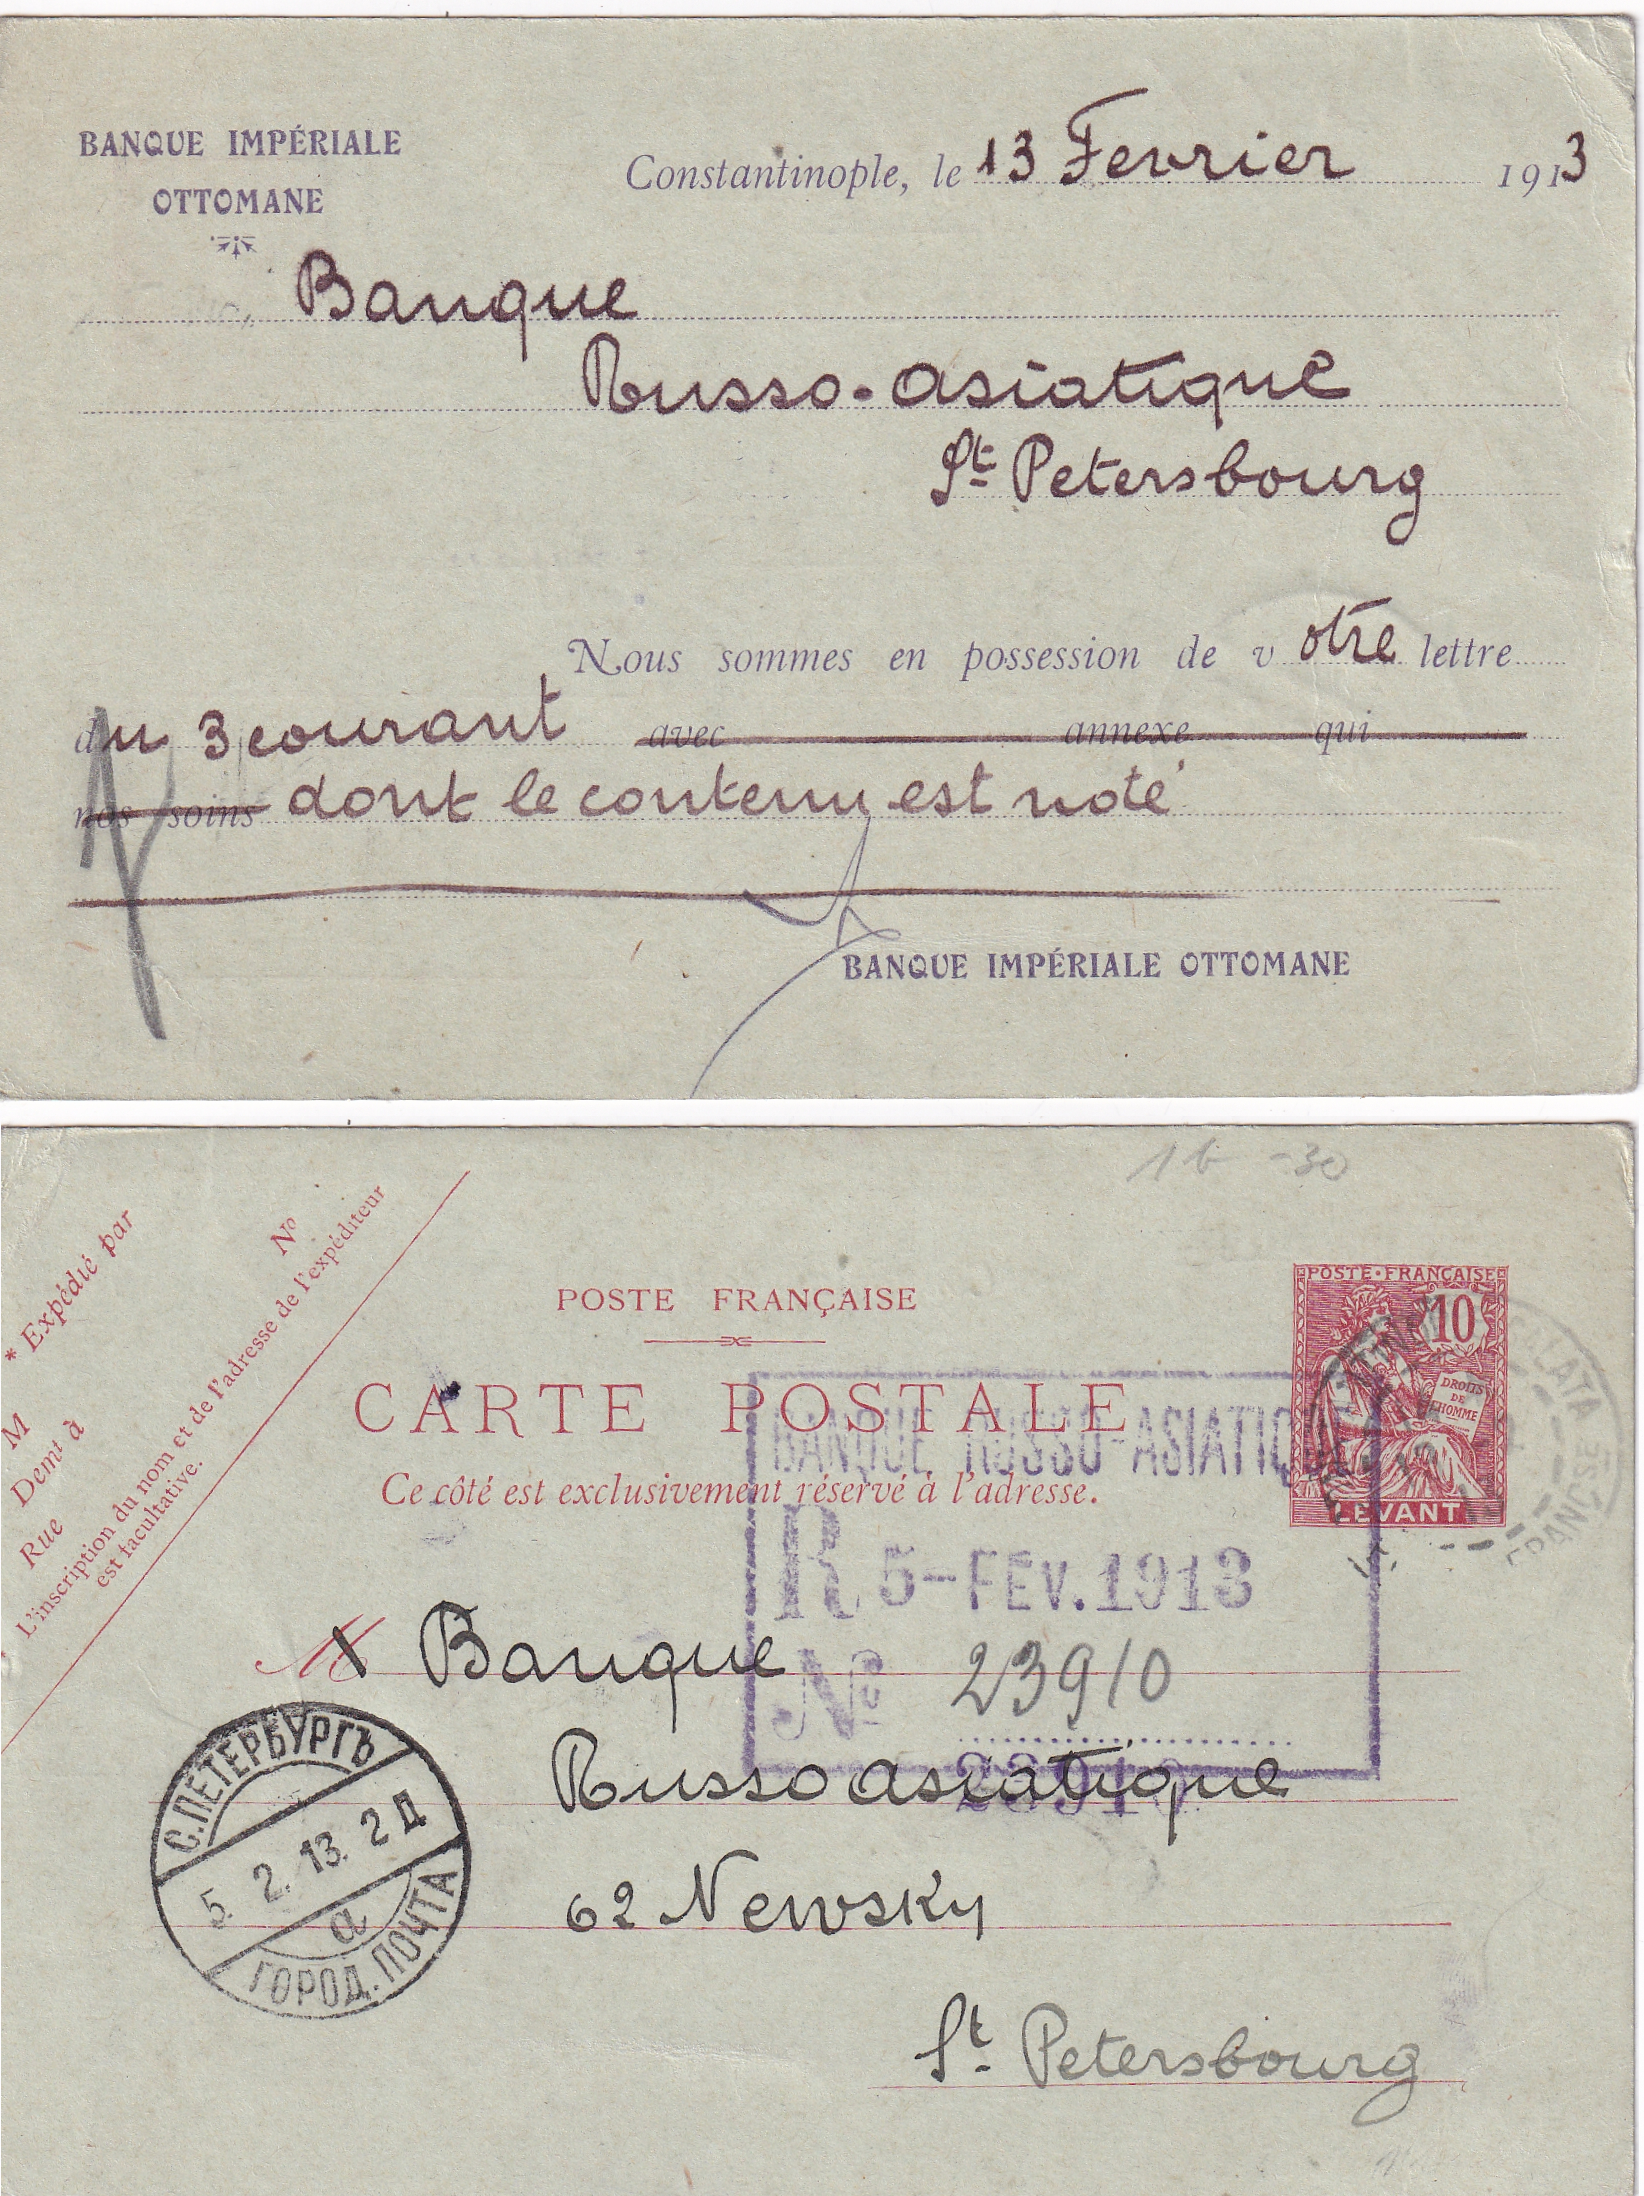 BANQUE IMPÉRIALE
OTTOMANE
Constantinople, le 13 Fevrier 1913
Banque
Russo-asiatique
St Petersbourg
Nous sommes en possession de votre lettre
du 3 courant avec annexe qui
nos soins dont le contenu est noté
BANQUE IMPÉRIALE OTTOMANE
1 b -30
* Expédié par
No
M
Demt à
Rue
L'inscription du nom et de l'adresse de l'expéditeur
est facultative.
POSTE FRANÇAISE
CARTE POSTALE
Ce côté est exclusivement réservé à l'adresse.
POSTE·FRANÇAISE
10
DROITS
DE
L'HOMME
LEVANT
GALATA
FRANÇSE
BANQUE RUSSO-ASIATIQUE
R 5-FÉV.1913
No 23910
23910
M Banque
Russo asiatique
62 Newsky
St Petersbourg
С.ПЕТЕРБУРГЪ
5. 2. 13. 2 Д
а
ГОРОД. ПОЧТА